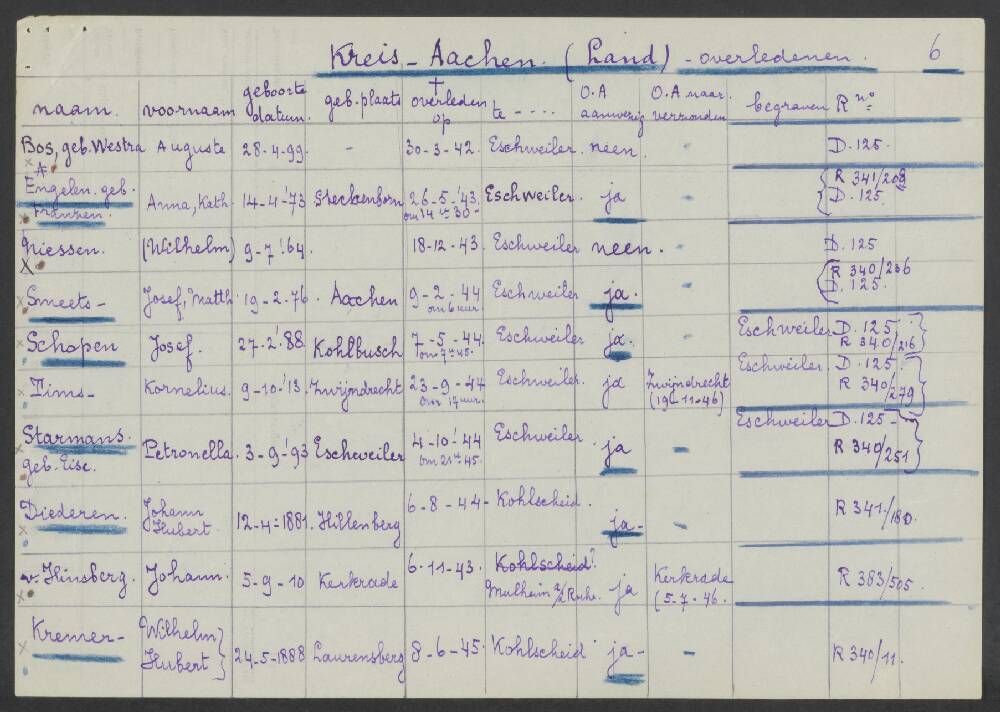 Kreis - Aachen. (Land) - overledenen. 6
naam. voornaam geboorte datum. geb. plaats † overleden op te - - - - O.A aanwezig O.A naar verzonden begraven R no
Bos, geb. Westra Auguste 28-4-99. - 30-3-42. Eschweiler. neen. - D. 125.
Engelen. geb. Franzen. Anna, Kath. 14-4-'73 Steckenborn 26-5-'43. om 14 u 30 Eschweiler. ja - { R 341/208 D. 125.
Niessen. (Wilhelm) 9-7'.64. 18-12-43. Eschweiler neen. - D. 125
Smeets - Josef, Matth. 19-2-76. Aachen 9-2-44 om 6 uur. Eschweiler ja. - ( R 340/236 D. 125.
Schopen Josef. 27-2-'88 Kohlbusch 7-5-44. om 7 u 45. Eschweiler ja. - Eschweiler D. 125 R 340/216 }
Tims - Kornelius. 9-10-'13. Zwijndrecht 23-9-44 om 17 uur. Eschweiler. ja Zwijndrecht (19-11-46) Eschweiler. D. 125. R 340/279 }
Starmans. geb. Eise. Petronella. 3-9-'93 Eschweiler 4-10-'44 om 21 u 45. Eschweiler ja - Eschweiler D. 125 - R 340/251 }
Diederen. Johann Hubert. 12-4-1881. Hillenberg 6-8-44- Kohlscheid. ja - - R 341./180.
v. Hinsberg. Johann. 5-9-10 Kerkrade 6-11-43. Kohlscheid? Mulheim a/d Ruhr. ja Kerkrade (5-7-46. R 383/505.
Kremer - {Wilhelm Hubert} 24-5-1888 Laurensberg 8-6-45. Kohlscheid ja - - R 340/11.